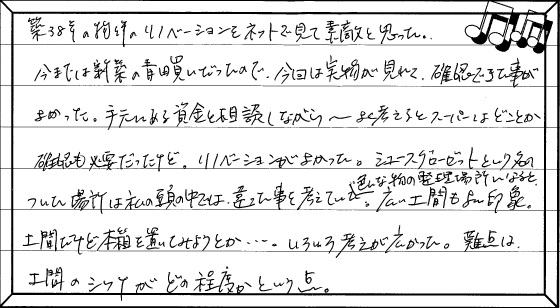 築38年の物件のリノベーションをネットで見て素敵と思った。
今までは新築の青田買いだったので、今回は実物が見れて、確認できた事が
よかった。手元にある資金と相談しながら〜よく考えるとスーパーはどことか
確認も必要だったけど。リノベーションがよかった。シューズクローゼットという名の
ついた場所は私の頭の中では、違った事を考えていた。広い土間もよい印象。
色んな物の整理場所になると、
土間だけど本箱を置いてみようとか・・・。いろいろ考えが広がった。難点は、
土間のシツケがどの程度かという点。